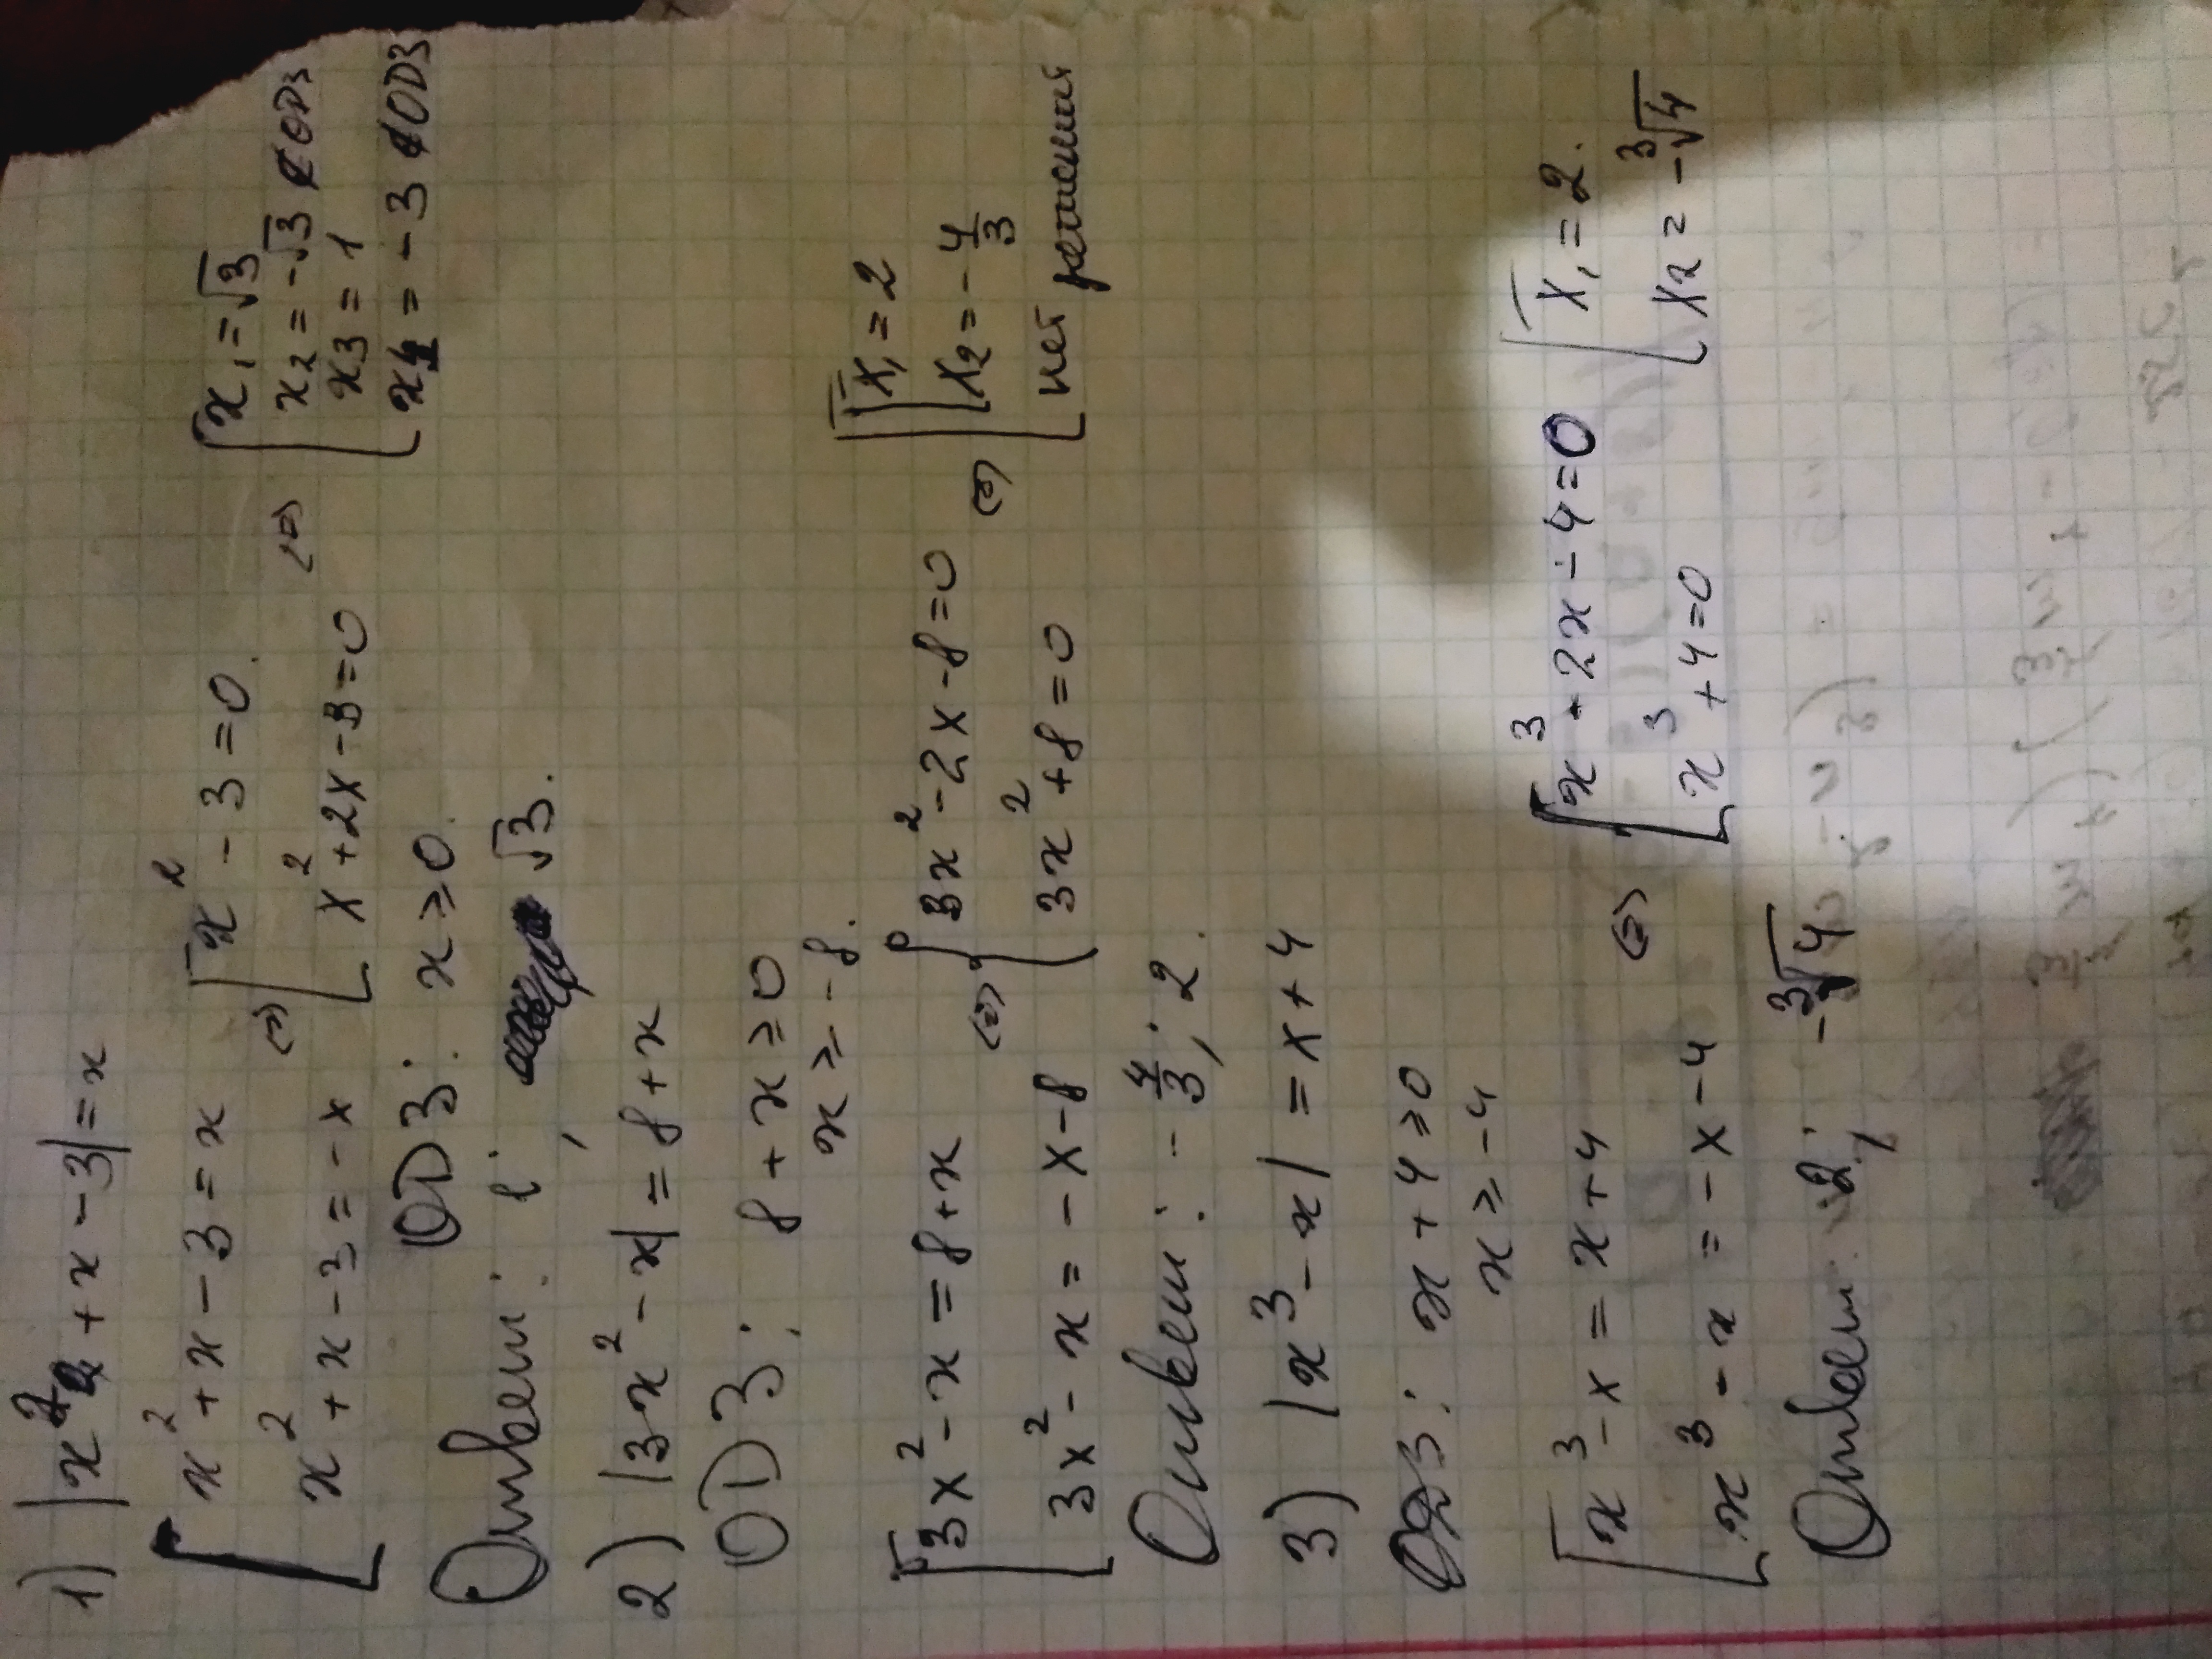 1) |x² + x - 3| = x
[ x² + x - 3 = x ⇔ [ x² - 3 = 0. ⇔ [ x₁ = √3
x² + x - 3 = -x x² + 2x - 3 = 0 x₂ = -√3 ∉ ОДЗ
x₃ = 1
x₄ = -3 ∉ ОДЗ
ОДЗ: x ≥ 0.
Ответ: 1; √3.
2) |3x² - x| = 8 + x
ОДЗ: 8 + x ≥ 0
x ≥ -8.
[ 3x² - x = 8 + x ⇔ [ 3x² - 2x - 8 = 0 ⇔ [ [ x₁ = 2
3x² - x = -x - 8 3x² + 8 = 0 x₂ = -4/3
нет решения
Ответ: -4/3; 2.
3) |x³ - x| = x + 4
ОДЗ: x + 4 ≥ 0
x ≥ -4
[ x³ - x = x + 4 ⇔ [ x³ - 2x - 4 = 0 [ x₁ = 2.
x³ - x = -x - 4 x³ + 4 = 0 x₂ = -³√4
Ответ: 2; -³√4